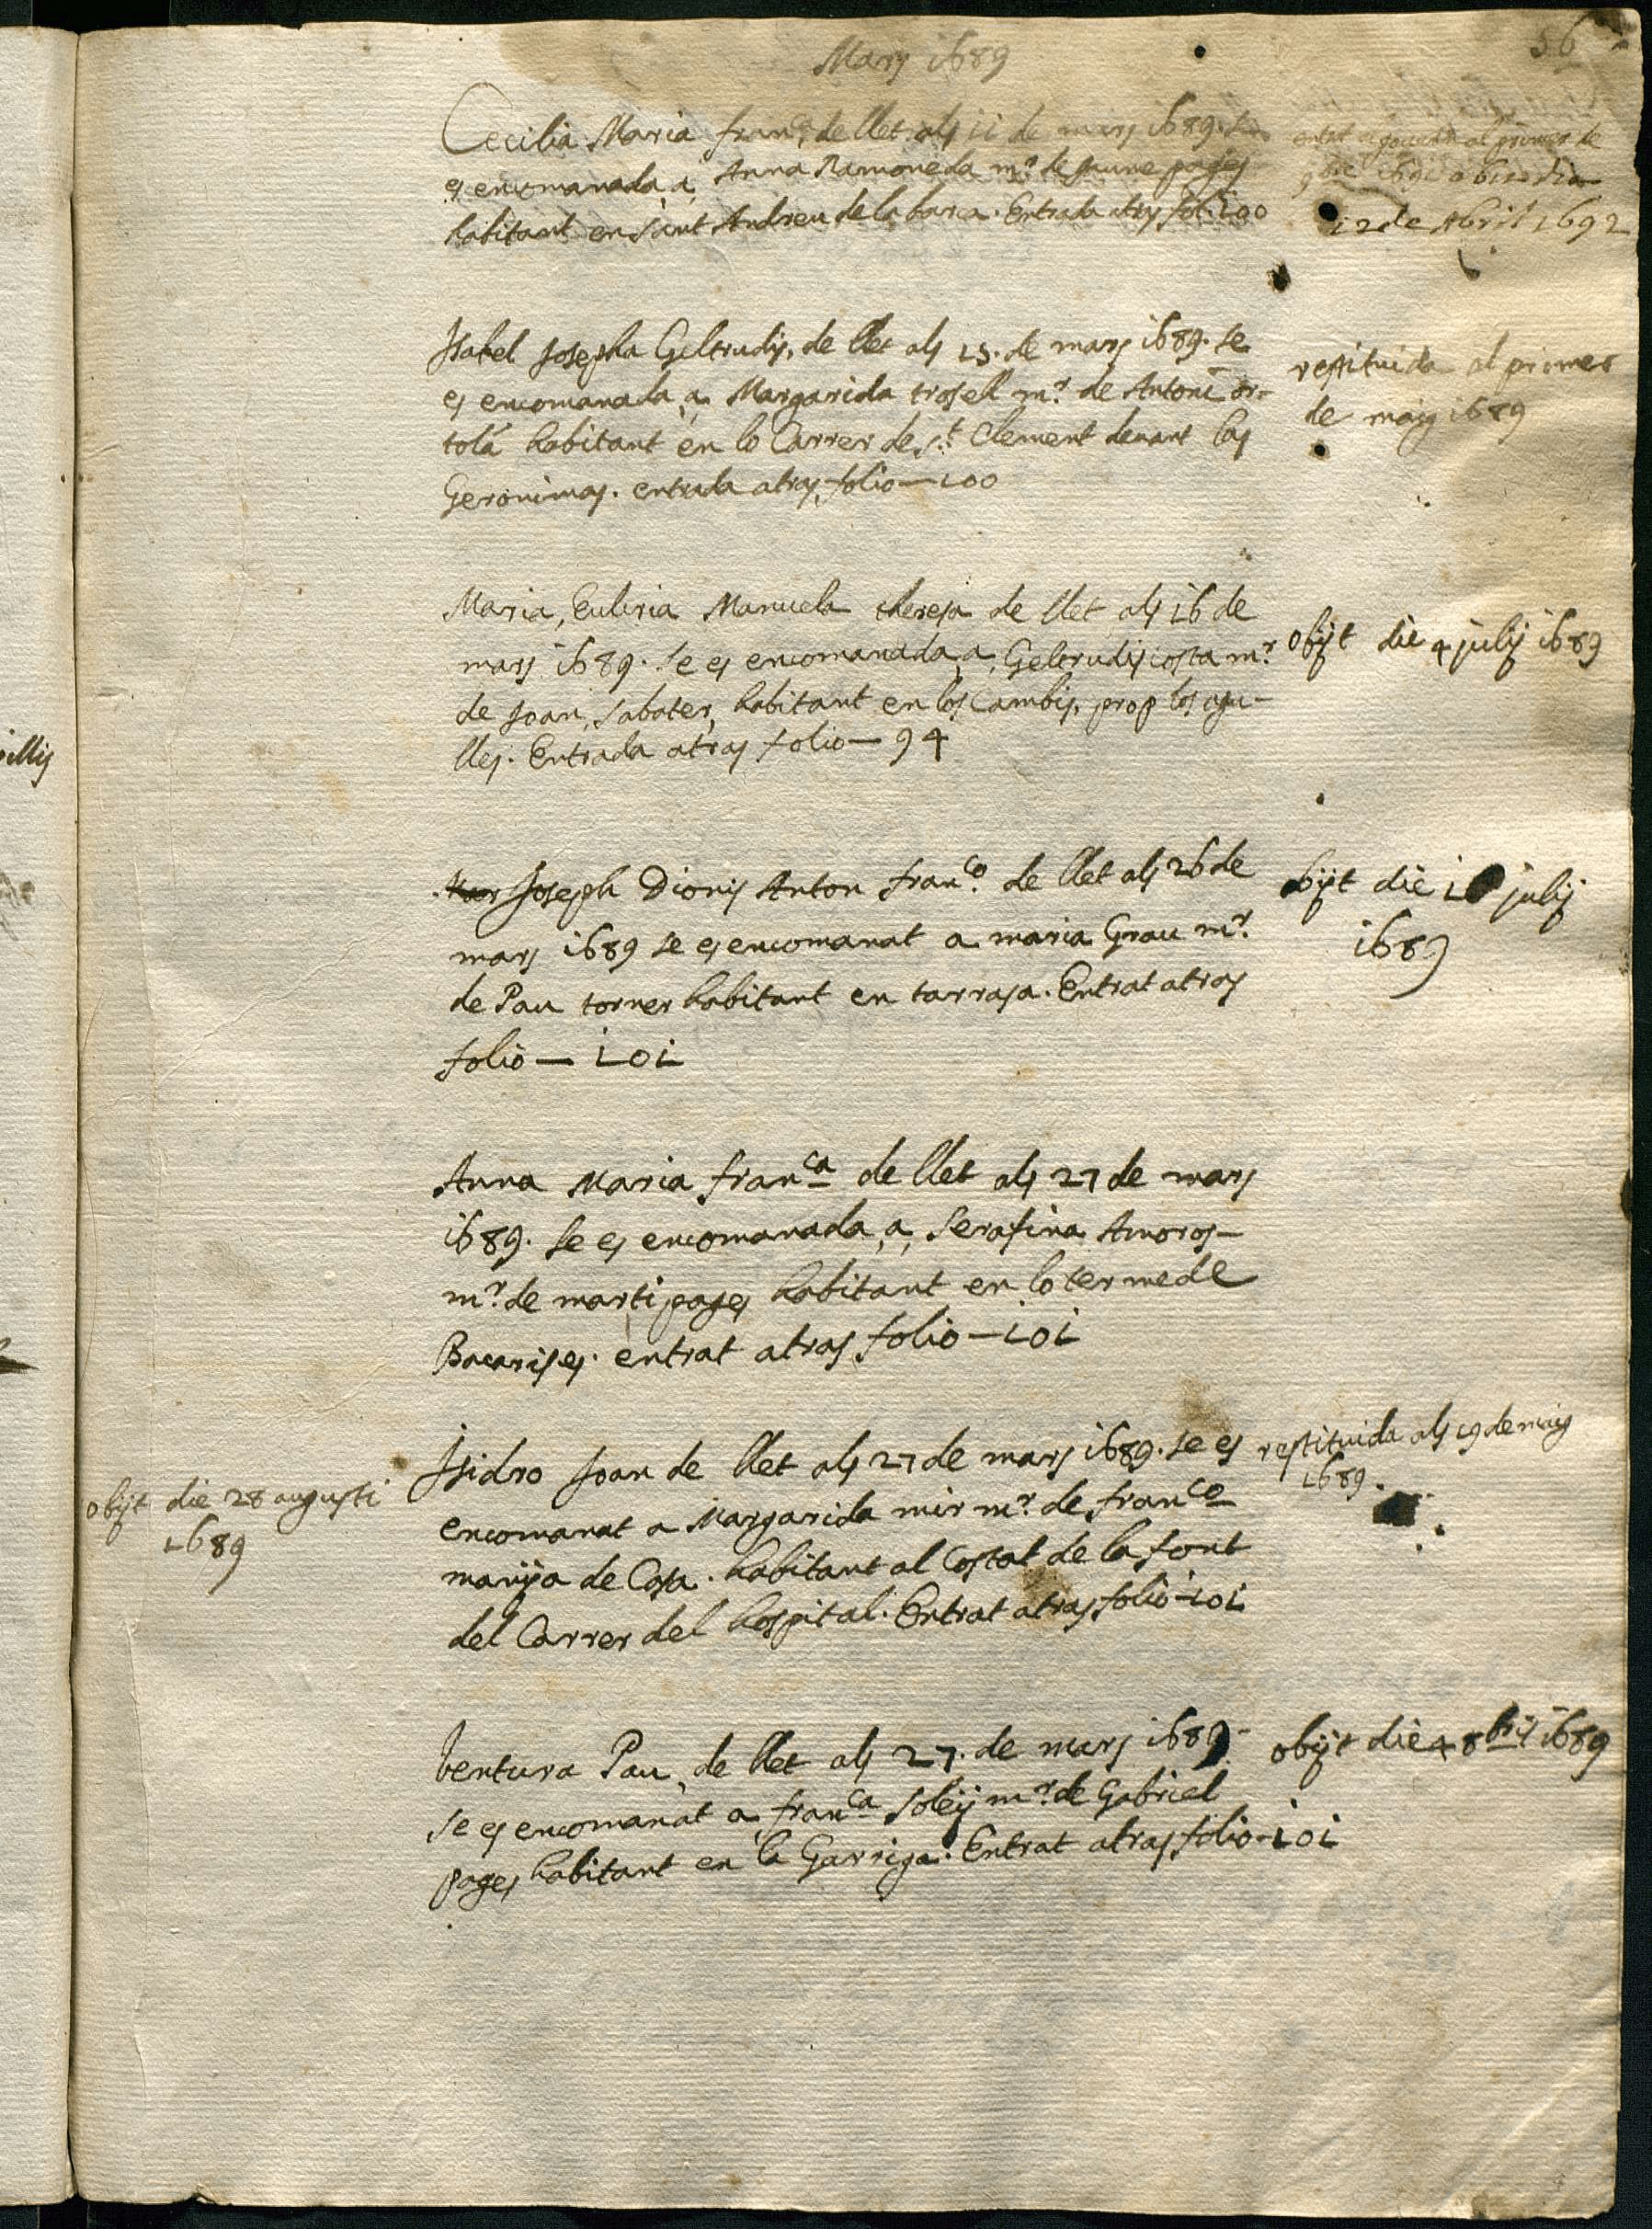 Mars 1689
56
Cecilia Maria fran.ca de llet als 11 de mars 1689. se
es encomanada a Anna Ramoneda mr. de Jaume pages
habitant en sant Andreu de la barca. Entrada atras fol. 100
al primer de
9bre 1691 obiit die
12 de Abril 1692
Isabel Josepha Geltrudis, de llet als 15. de mars 1689. se
es encomanada a Margarida trosell mr. de Antoni or-
tolá habitant en lo Carrer de st. Clement devant las
Geronimas. entrada atras folio — 100
restituida al primer
de maig 1689
Maria, Euleria Manuela theresa de llet als 16 de
mars 1689. se es encomanada a Geltrudis costa mr.
de Joan, sabater, habitant en los Cambis, prop los agu-
lles. Entrada atras folio — 94
obijt die 4 julij 1689
Joseph Dionis Anton franco. de llet als 26 de
mars 1689 se es encomanat a maria Grau mr.
de Pau torner habitant en tarrasa. Entrat atras
folio — 101
obijt die julij
1689
Anna Maria franca de llet als 27 de mars
1689. se es encomanada a serafina Amoros —
mr. de marti pages habitant en lo terme de
Bacarises. entrat atras folio — 101
Isidro Joan de llet als 27 de mars 1689. se es
encomanat a Margarida mir mr. de franco
manya de Casa. habitant al Costat de la font
del Carrer del hospital. Entrat atras folio — 101
restituida als 19 de maig
1689.
obijt die 28 augusti
1689
Ventura Pau, de llet als 27. de mars 1689 —
se es encomanat a franca soley mr. de Gabriel
pages habitant en la Garriga. Entrat atras folio — 101
obijt die 4 8bris 1689